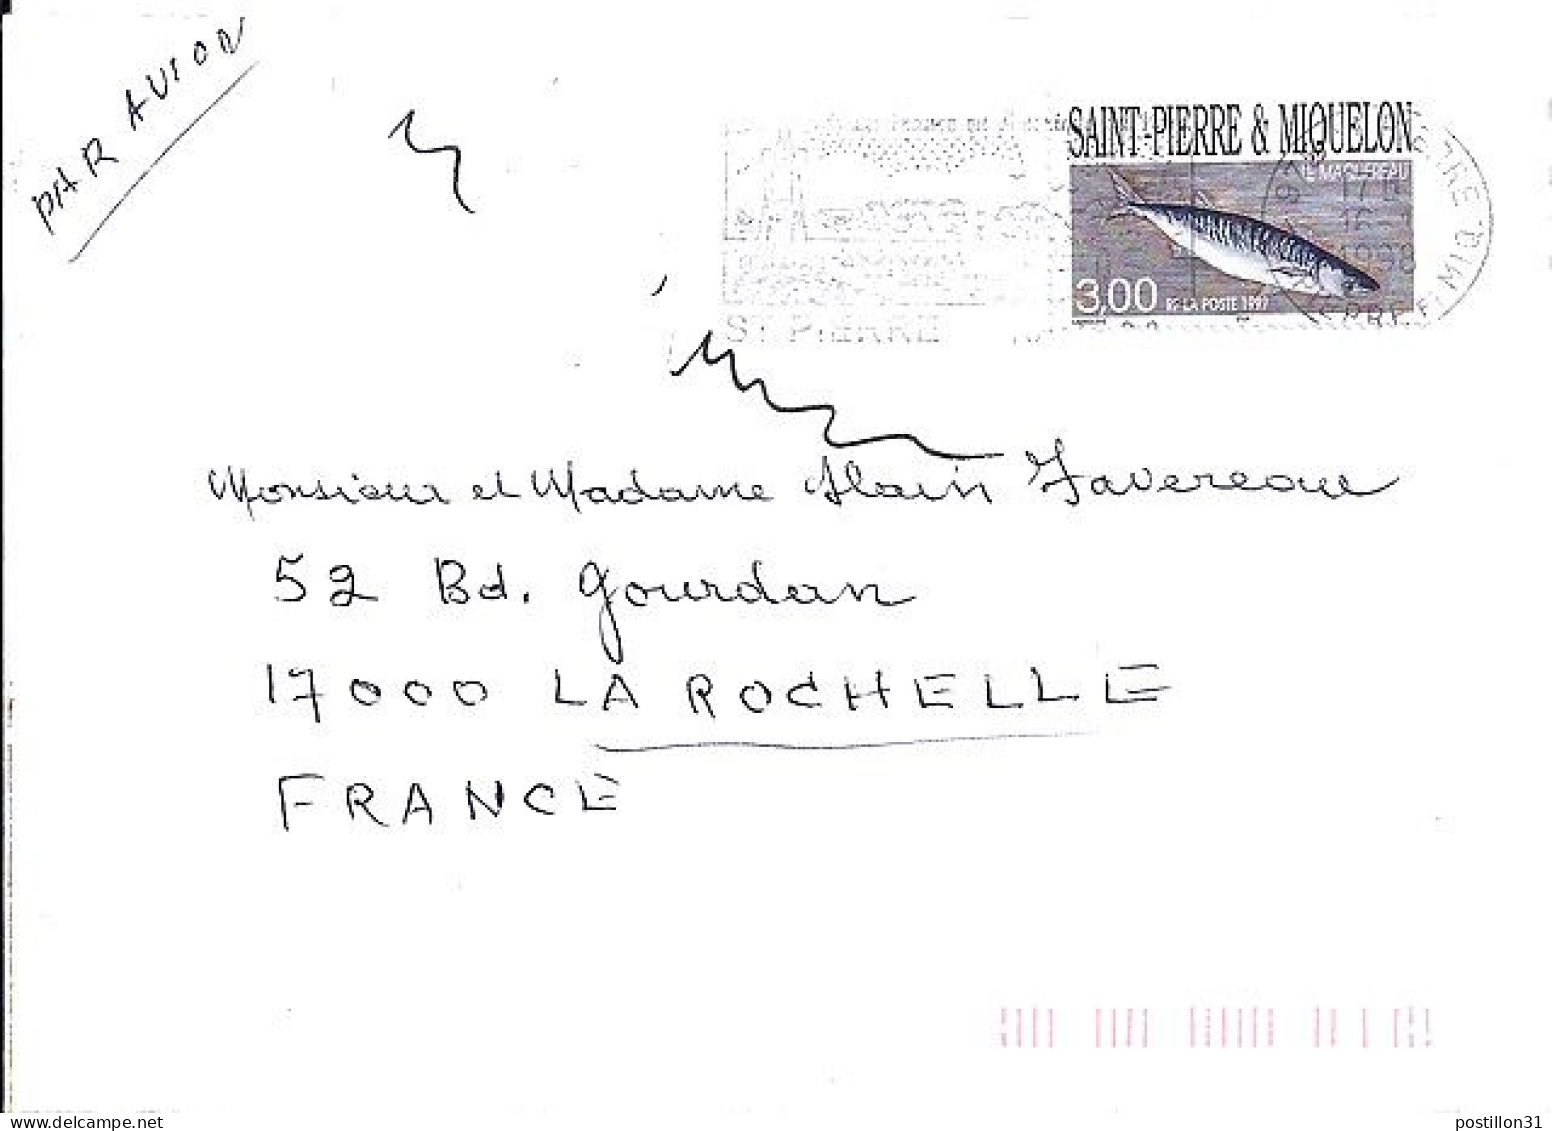 PAR AVION
SAINT-PIERRE & MIQUELON
LE MAQUEREAU
3,00 RF LA POSTE 1997
16-1
1998
ST PIERRE
Monsieur et Madame Alain Favereau
52 Bd. Gourdan
17000 LA ROCHELLE
FRANCE
delcampe.net
postillon31